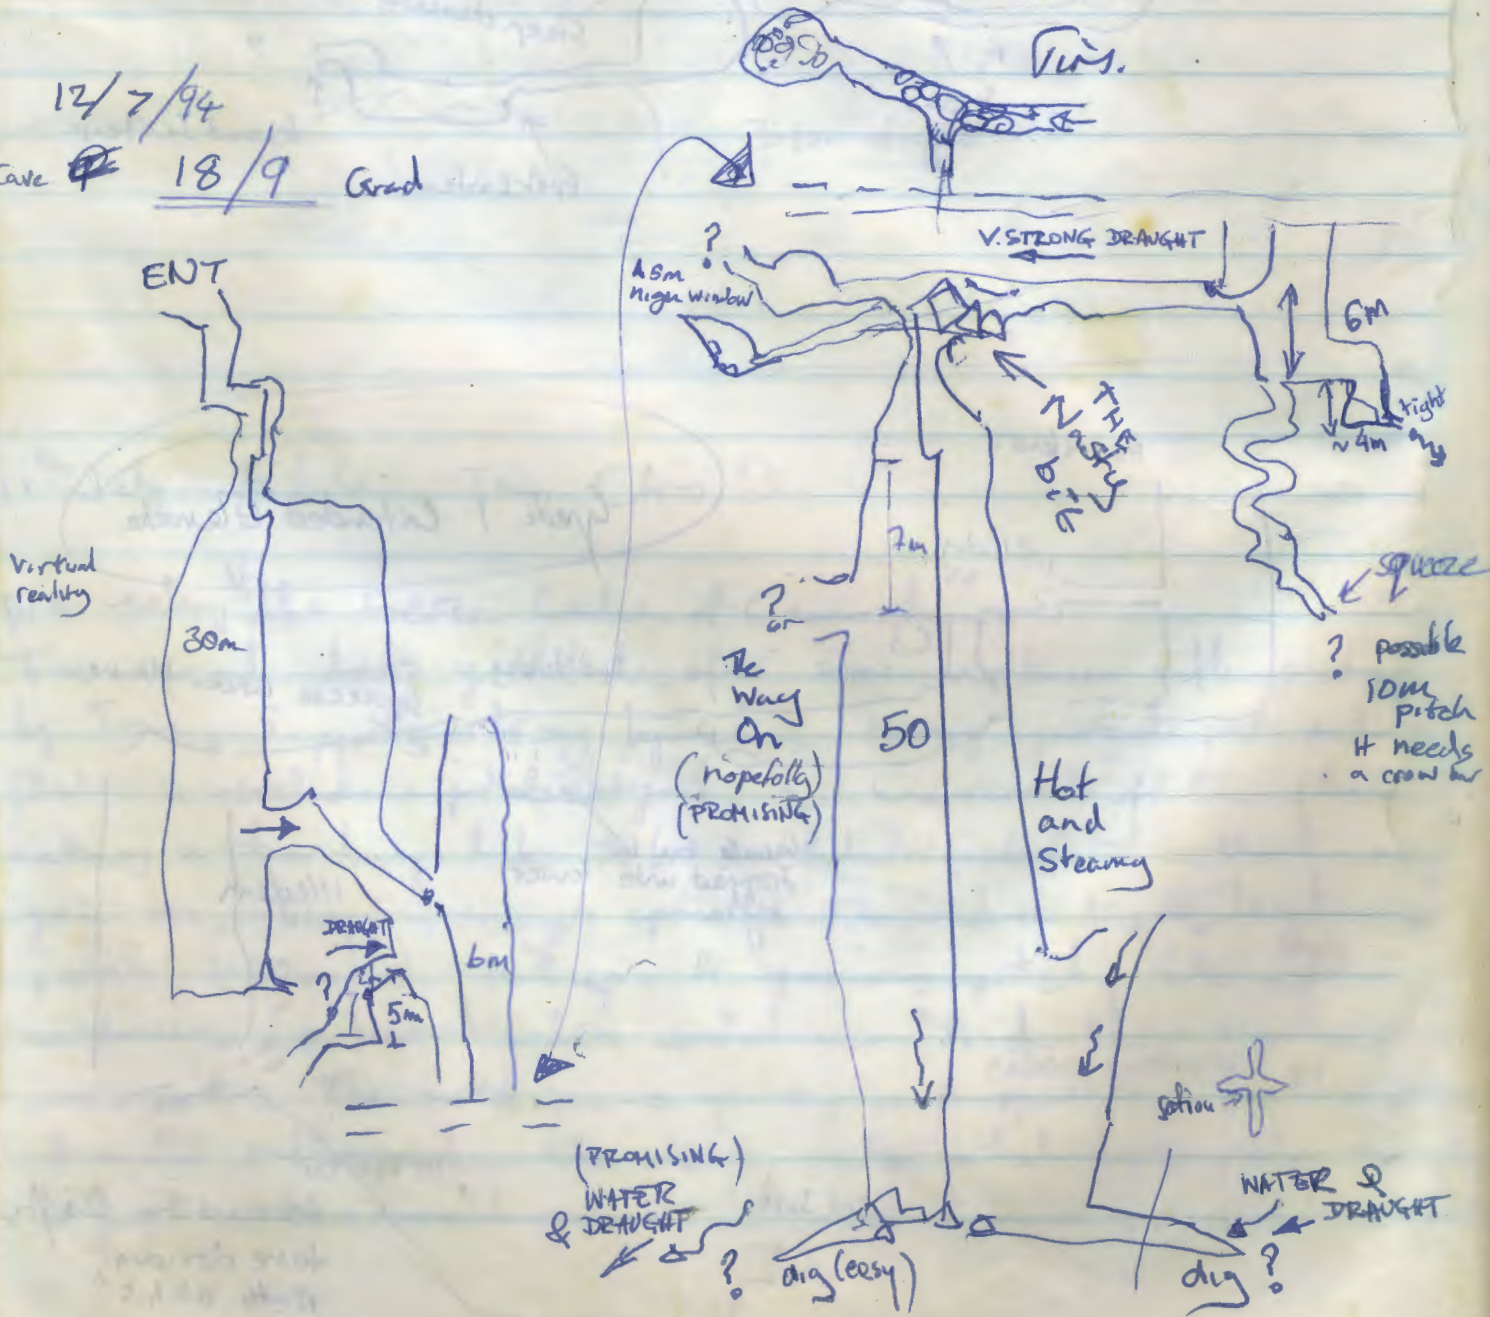 12/7/94
Cave 18/9 Grad
ENT
Virtual
reality
30m
DRAUGHT
?
5m
6m
V. STRONG DRAUGHT
?
A 5m
high window
THE
Nasty
bit
6m
tight
~4m
squeeze
? possible
10m
pitch
It needs
a crow bar
7m
?
or
The
Way
On
(hopefully)
(PROMISING)
50
Hot
and
Steamy
(PROMISING)
WATER
& DRAUGHT
?
dig (easy)
WATER &
DRAUGHT
dig ?